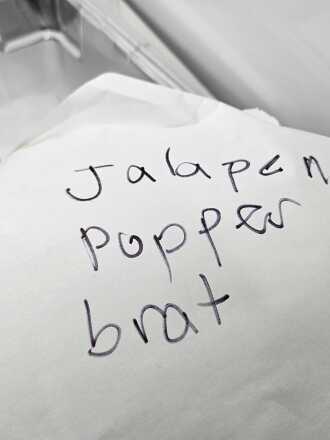 Jalapen
popper
brat